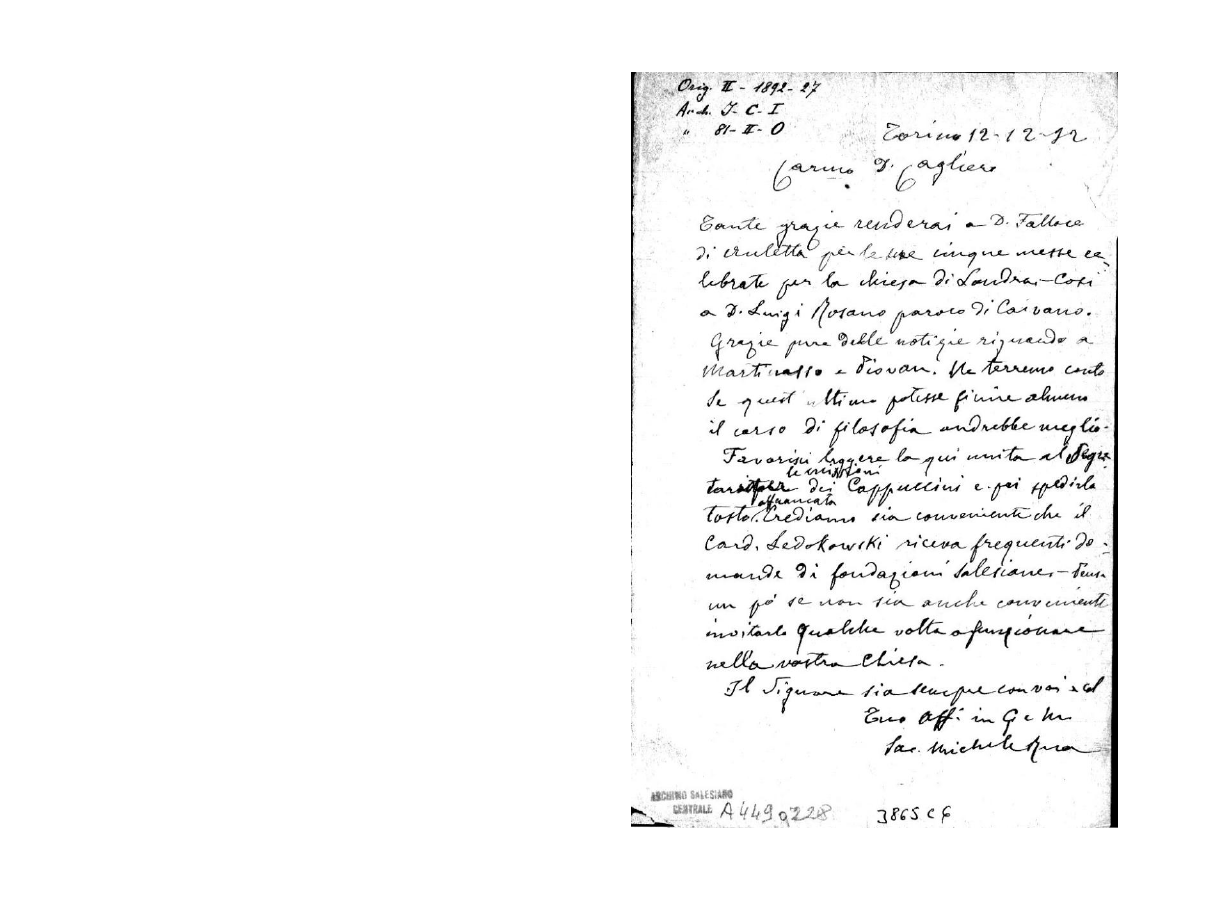 Orig. II - 1892 - 27
Arch. I - C - I
" 81 - II - O
Torino 12-12-92
Carmo D. Cagliero
Tante grazie renderai a D. Fallace
di per le sue cinque messe ce-
lebrate per la chiesa di Londra - Così
a D. Luigi Rosano paroco di Caivano.
Grazie pure delle notizie riguardo a
Martinasso e Piovan. Ne terremo conto
Se quest'ultimo potesse finire almeno
il corso di filosofia andrebbe meglio.
Favorisci leggere la qui unita al Segre
le missioni
dei Cappuccini e poi spedirla
affrancata
tosto. Crediamo sia conveniente che il
Card. Ledokowski riceva frequenti do-
mande di fondazioni Salesiane - Pensa
un po' se non sia anche conveniente
invitarlo qualche volta a funzionare
nella vostra Chiesa.
Il Signore sia sempre con voi e col
Tuo aff. in G e M
Sac. Michele Rua
ARCHIVIO SALESIANO
CENTRALE A4490228
3865 C6